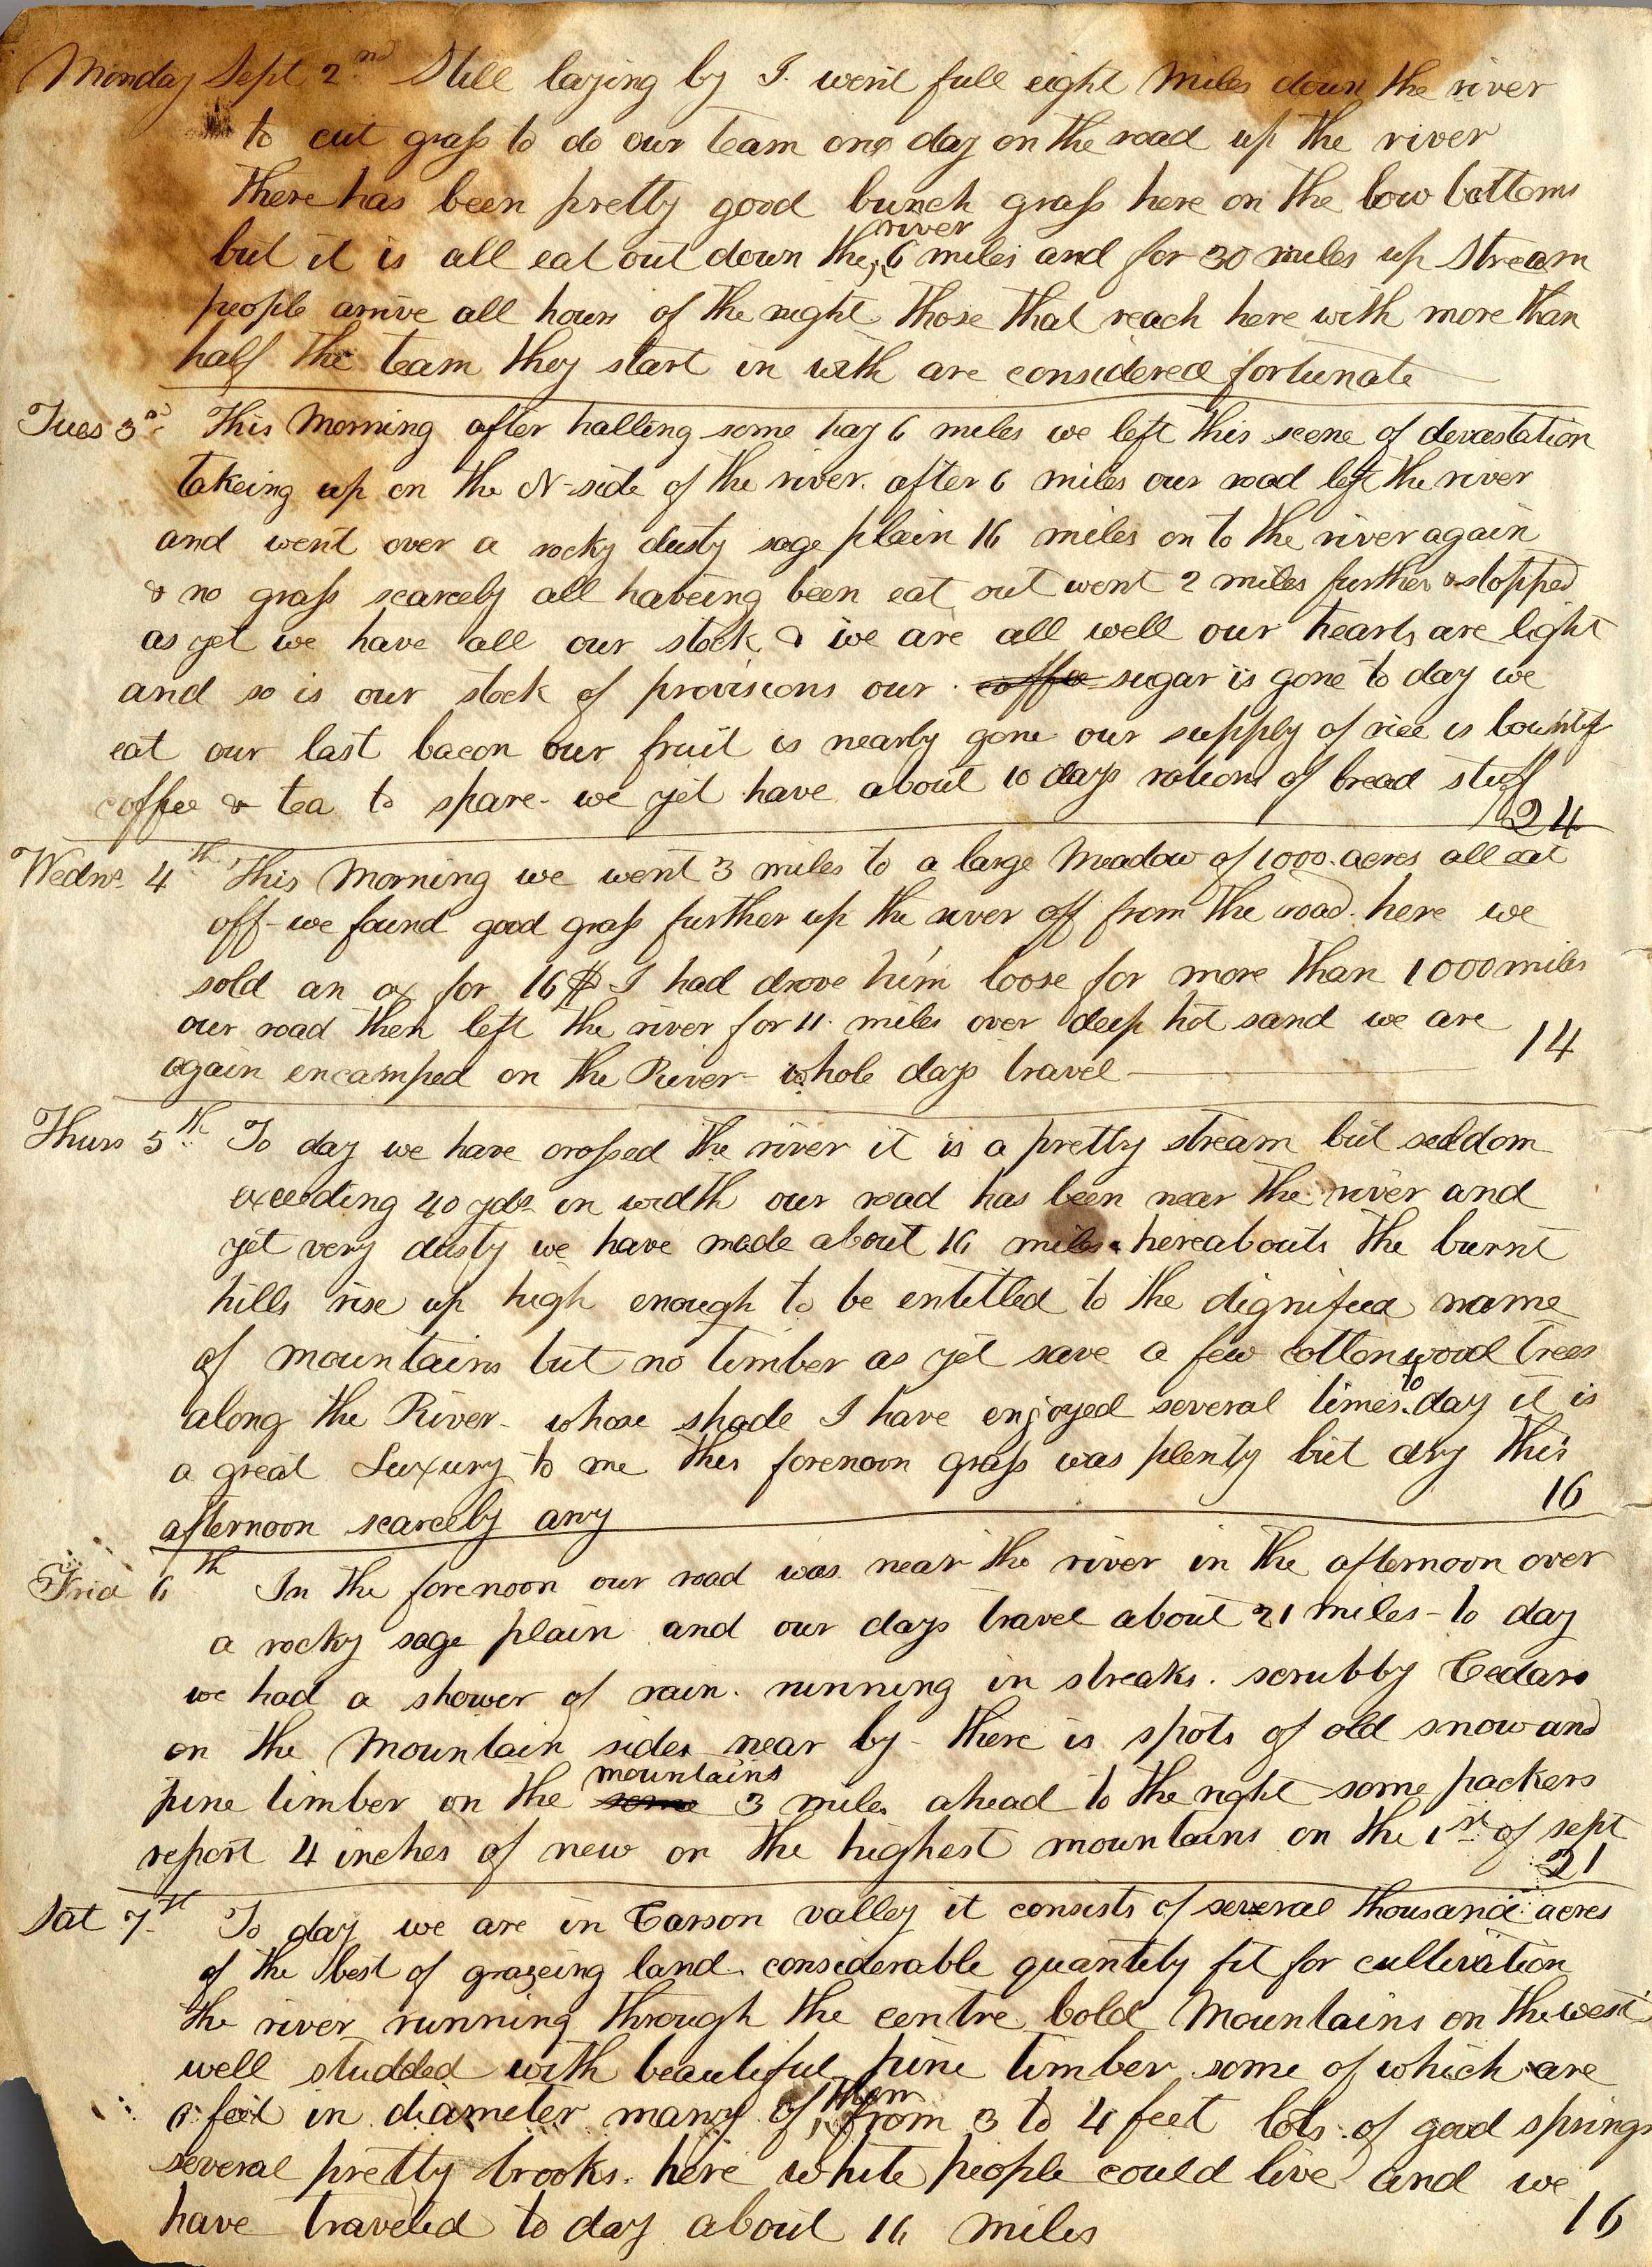 Monday Sept 2nd Still laying by I. went full eight miles down the river
to cut grass to do our team one day on the road up the river
There has been pretty good bunch grass here on the low bottoms
river
but it is all eat out down the 6 miles and for 30 miles up stream
people arrive all hours of the night Those that reach here with more than
half the team they start in with are considered fortunate
Tues 3rd This Morning after halling some hay 6 miles we left this scene of devastation
takeing up on the N-side of the river. after 6 miles our road left the river
and went over a rocky dusty sage plain 16 miles on to the river again
& no grass scarcely all haveing been eat out went 2 miles further & stopped
as yet we have all our stock & we are all well our hearts are light
and so is our stock of provisions our coffee sugar is gone to day we
eat our last bacon our fruit is nearly gone our supply of rice is bounty
coffee & tea to spare- we yet have about 10 days rations of bread stuff
24
Wedns 4th This Morning we went 3 miles to a large Meadow of 1000. acres all eat
off- we found good grass further up the river off from the road. here we
sold an ox for 16$ I had drove him loose for more than 1000 miles
our road then left the river for 11. miles over deep hot sand we are
again encamped on the River- whole days travel 14
Thurs 5th To day we have crossed the river it is a pretty stream but seldom
exceeding 40 yds in width our road has been near the river and
yet very dusty we have made about 16 miles & hereabouts the burnt
hills rise up high enough to be entitled to the dignified name
of mountains but no timber as yet save a few cottonwood trees
to
along the River- whose shade I have enjoyed several times. day it is
a great Luxury to me this forenoon grass was plenty but dry this
afternoon scarcely any 16
Frid 6th In the forenoon our road was near the river in the afternoon over
a rocky sage plain and our days travel about 21 miles- to day
we had a shower of rain. running in streaks. scrubby Cedars
on the Mountain sides near by- there is spots of old snow and
mountains
pine timber on the some 3 miles ahead to the right some packers
report 4 inches of new on the highest mountains on the 1st of sept
21
Sat 7th To day we are in Carson valley it consists of several thousand acres
of the best of grazeing land. considerable quantity fit for cultivation
the river running through the centre bold Mountains on the west
well studded with beautiful pine timber some of which are
them
feet in diameter many of from 3 to 4 feet lots of good springs
several pretty brooks. here white people could live and we
have traveled to day about 16 miles 16